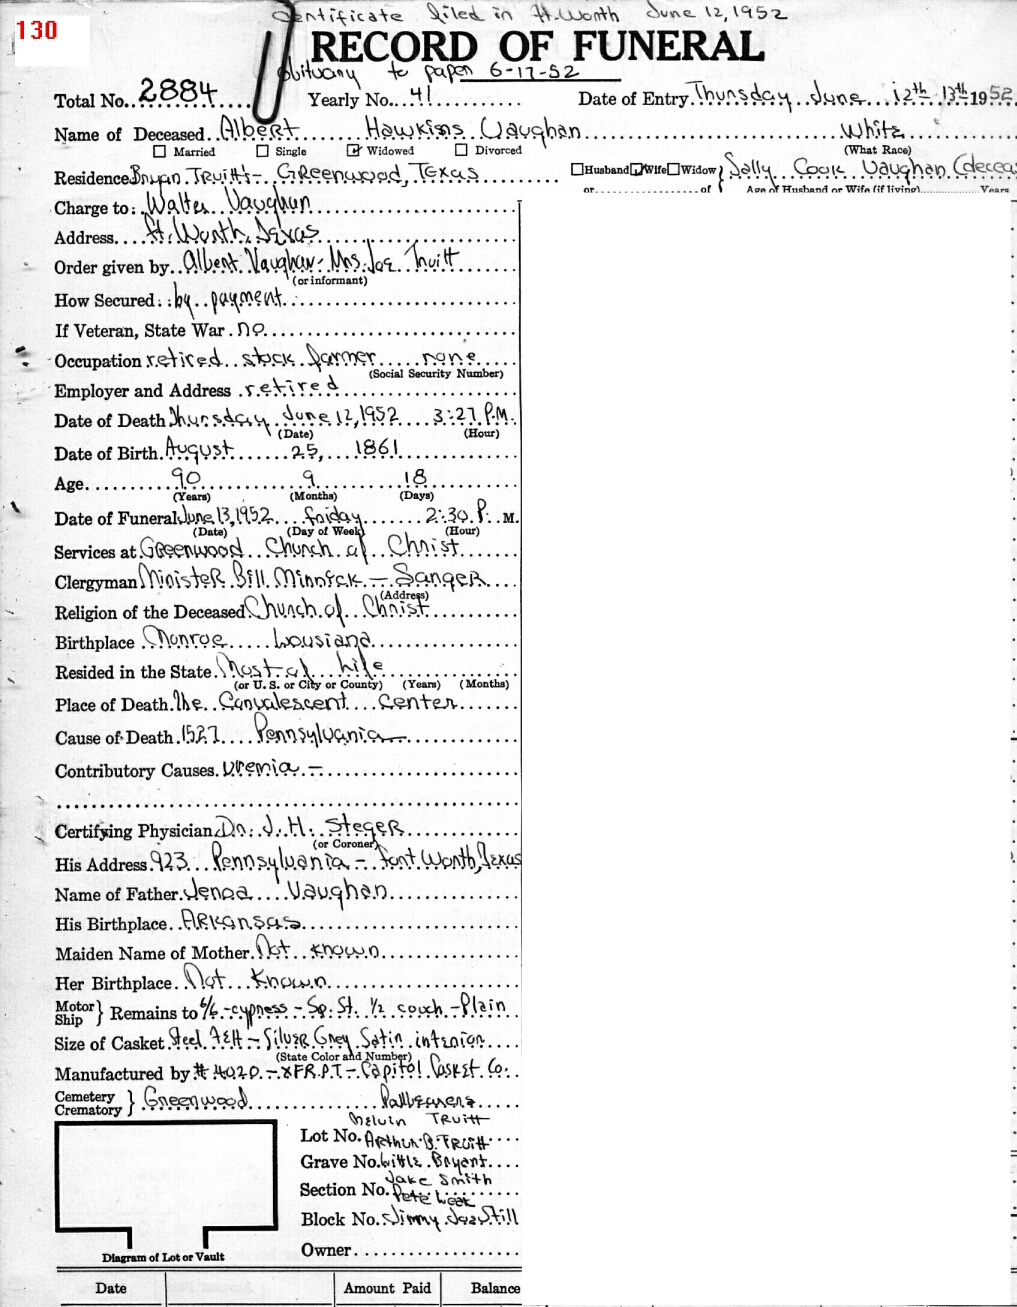 Certificate filed in Ft. Worth June 12, 1952
130
RECORD OF FUNERAL
obituary to paper 6-17-52
Total No. 2884 Yearly No. 41 Date of Entry Thursday June 12th 13th 1952
Name of Deceased Albert Hawkins Vaughan White
☐ Married ☐ Single ☑ Widowed ☐ Divorced (What Race)
Residence Bryan Truitt - Greenwood, Texas ☐ Husband ☑ Wife ☐ Widow Sally Cook Vaughan (decea
or of Age of Husband or Wife (if living) Years
Charge to: Walter Vaughan
Address Ft. Worth, Texas
Order given by Albert Vaughan - Mrs. Joe Truitt
(or informant)
How Secured: by payment
If Veteran, State War no
Occupation retired stock farmer none
(Social Security Number)
Employer and Address retired
Date of Death Thursday June 12, 1952 3:27 P.M.
(Date) (Hour)
Date of Birth August 25, 1861
Age 90 9 18
(Years) (Months) (Days)
Date of Funeral June 13, 1952 friday 2:30 P. M.
(Date) (Day of Week) (Hour)
Services at Greenwood Church of Christ
Clergyman Minister Bill Minnick - Sanger
(Address)
Religion of the Deceased Church of Christ
Birthplace Monroe Lousiana
Resided in the State Most of Life
(or U. S. or City or County) (Years) (Months)
Place of Death The Convalescent Center
Cause of Death 1527 Pennsylvania
Contributory Causes uremia -
Certifying Physician Dr. J. H. Steger
(or Coroner)
His Address 923 Pennsylvania - Fort Worth, Texas
Name of Father Vaughan
His Birthplace Arkansas
Maiden Name of Mother Not known
Her Birthplace Not Known
Motor Ship } Remains to 6/6 - cypress - Sp. St. 1/2 couch - Plain
Size of Casket Steel Felt - Silver Grey Satin interior
(State Color and Number)
Manufactured by # 4020 - XFR.PT - Capitol Casket Co.
Cemetery Crematory } Greenwood Pallbearers
Melvin Truitt
Lot No. Arthur B. Truitt
Grave No. Bryant
Jake Smith
Section No. Pete
Block No. Jimmy Joe Still
Owner
Diagram of Lot or Vault
Date Amount Paid Balance